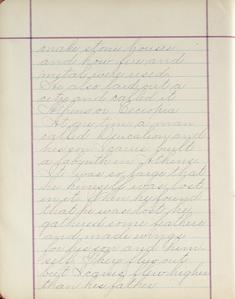 make stone houses
and how fire and
metal were used.
He also laid out a
city and called it
Athens or Cecropia
At one time a man
called
and
his son Icarus built
a labynth in Athens
It was so large that
he himself was lost
in it. When he found
that he was lost, he
gathered some feathers
and made wings
for his son and him
self. They flew out
but Icarus flew higher
than his father